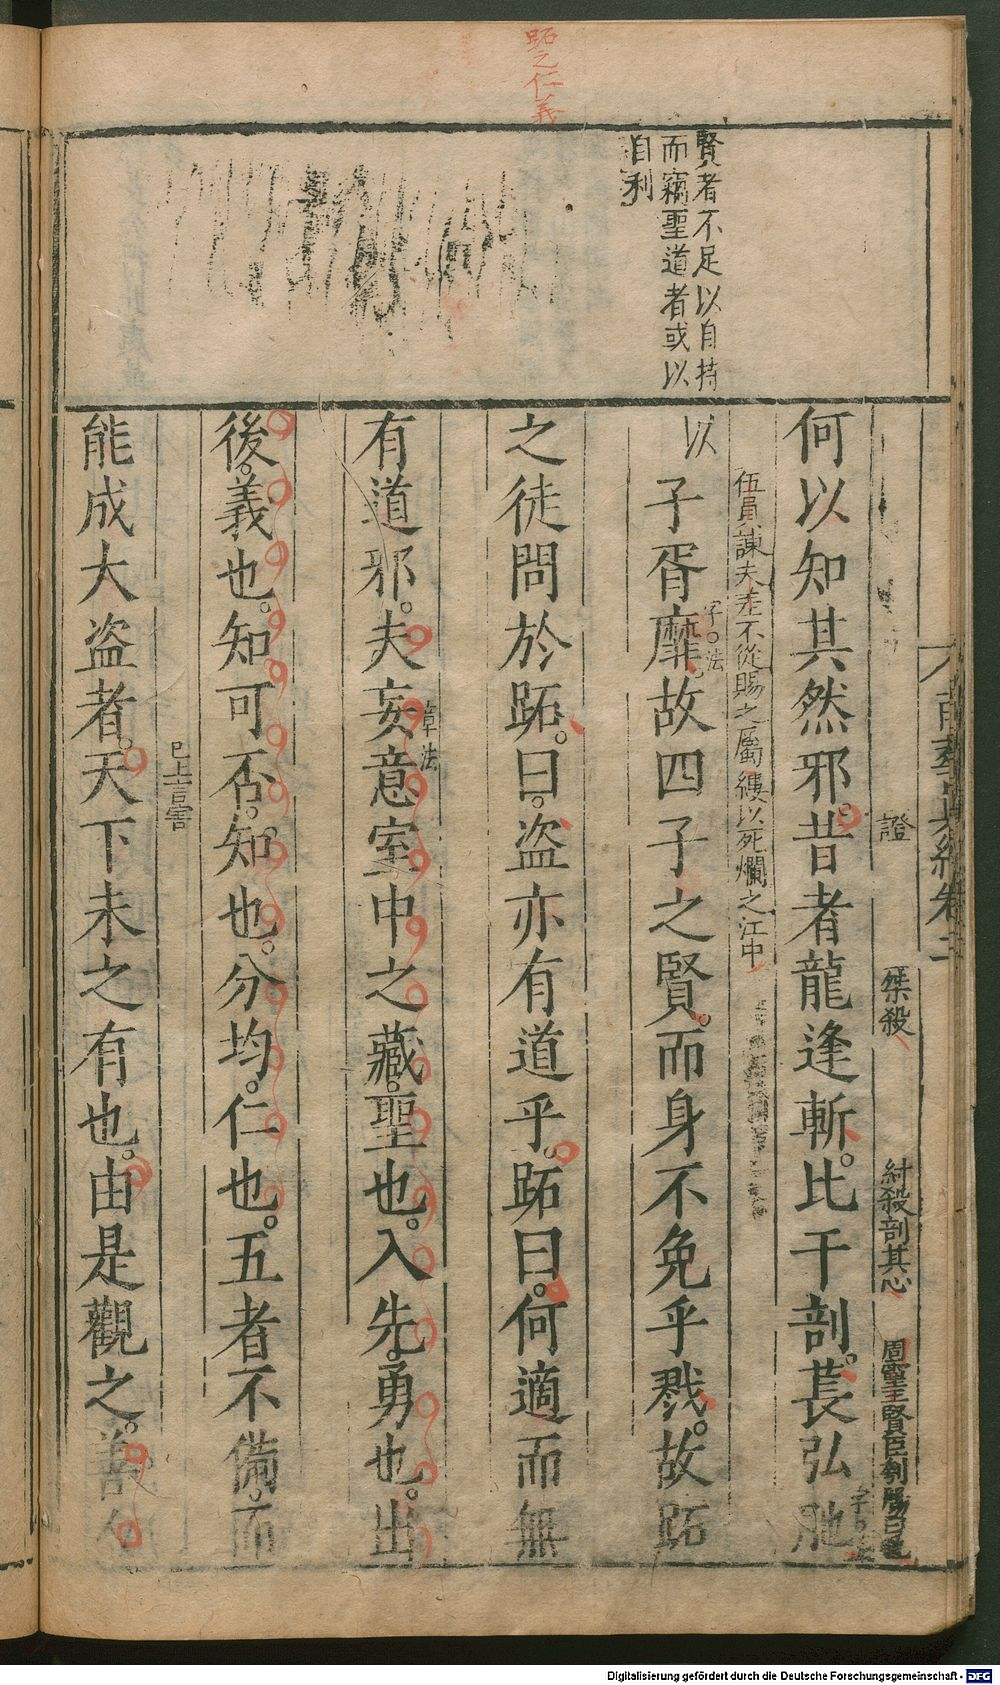 跖之仁義
賢者不足以自持
而竊聖道者或以
自利
南華真經卷三
證
桀殺
紂殺剖其心
周靈王賢臣刳腸曰胣
何以知其然邪。昔者龍逢斬。比干剖。萇弘胣
伍員諫夫差不從賜之屬縷以死爛之江中
字法
以
子胥靡。故四子之賢。而身不免乎戮。故跖
之徒問於跖。曰。盜亦有道乎。跖曰。何適而無
章法
有道邪。夫妄意室中之藏。聖也。入先。勇也。出
後。義也。知可否。知也。分均。仁也。五者不備。而
已上言害
能成大盗者。天下未之有也。由是觀之。善人
Digitalisierung gefördert durch die Deutsche Forschungsgemeinschaft - DFG